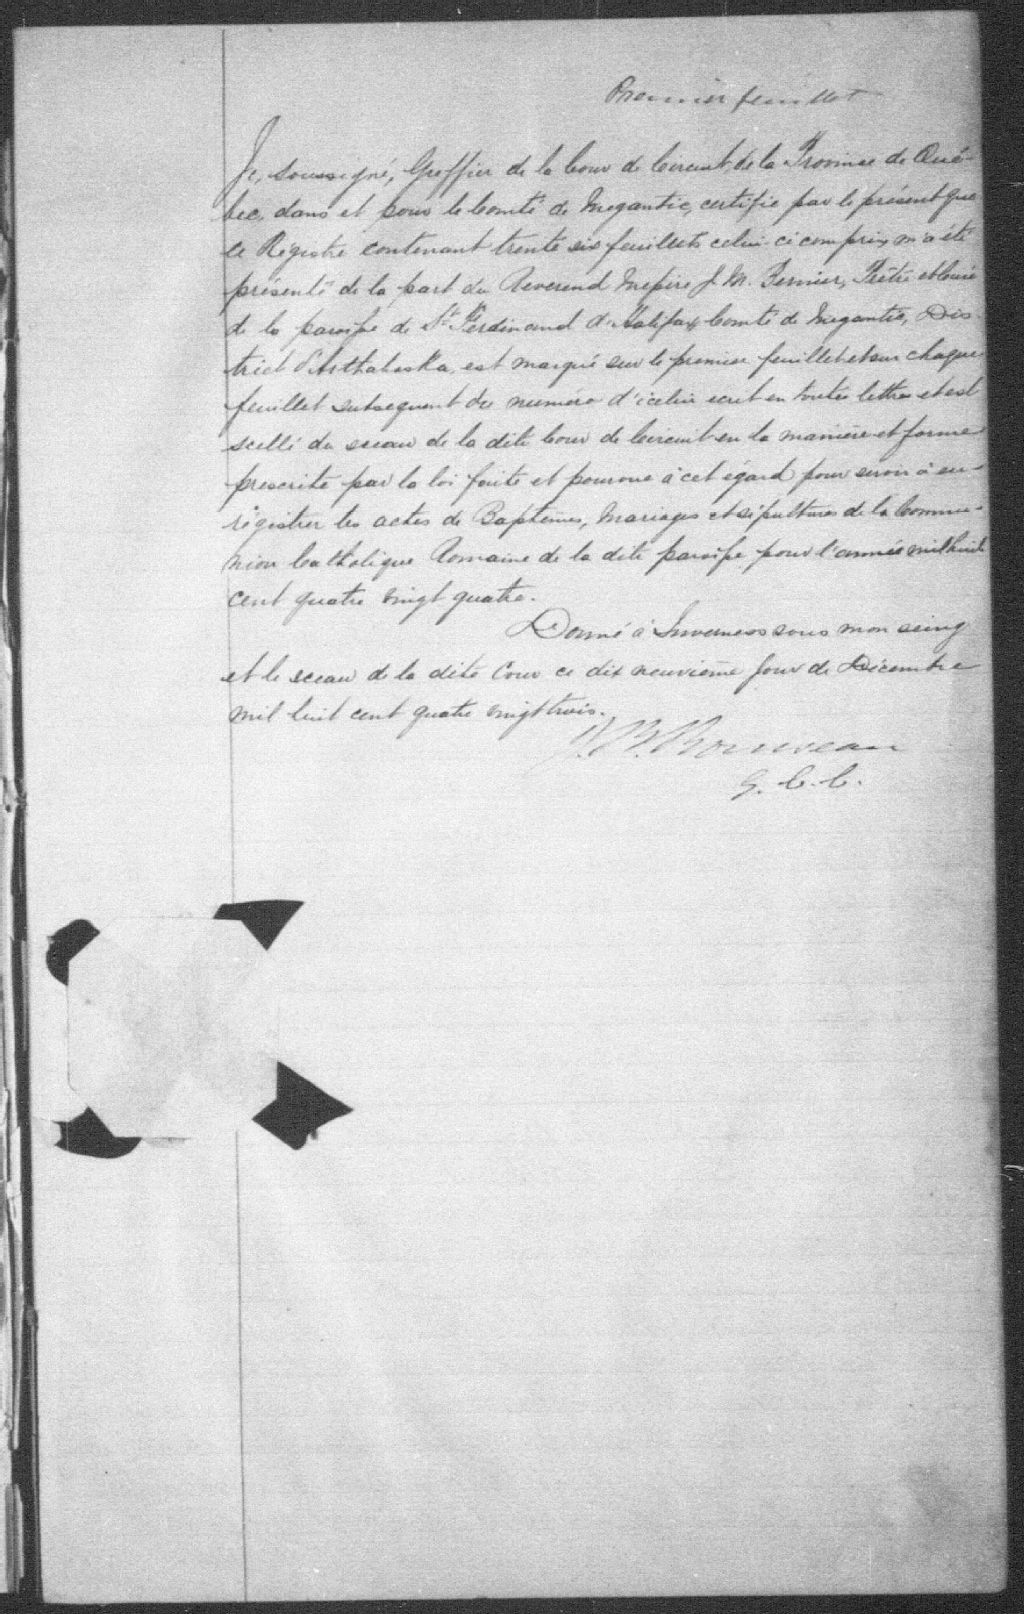 Premier feuillet
Je, soussigné, Greffier de la Cour de Circuit de la Province de Qué-
bec, dans et pour le Comté de Megantic, certifie par le présent que
ce Régistre contenant trente six feuillets celui-ci compris, m'a été
présenté de la part du Reverend Messire J. M. Bernier, Prêtre et Curé
de la paroisse de St Ferdinand d'Halifax Comté de Megantic, Dis-
trict d'Arthabaska, est marqué sur le premier feuillet et sur chaque
feuillet subsequent du numéro d'icelui ecrit en toutes lettres et est
scellé du sceau de la dite Cour de Circuit en la manière et forme
prescrite par la loi faite et pourvue à cet égard pour servir à en-
régistrer les actes de Baptêmes, Mariages et sépultures de la Commu-
nion Catholique Romaine de la dite paroisse pour l'année mil huit
cent quatre vingt quatre.
Donné à Inverness sous mon seing
et le sceau de la dite Cour ce dix neuvième jour de Décembre
mil huit cent quatre vingt trois.
G. C. C.